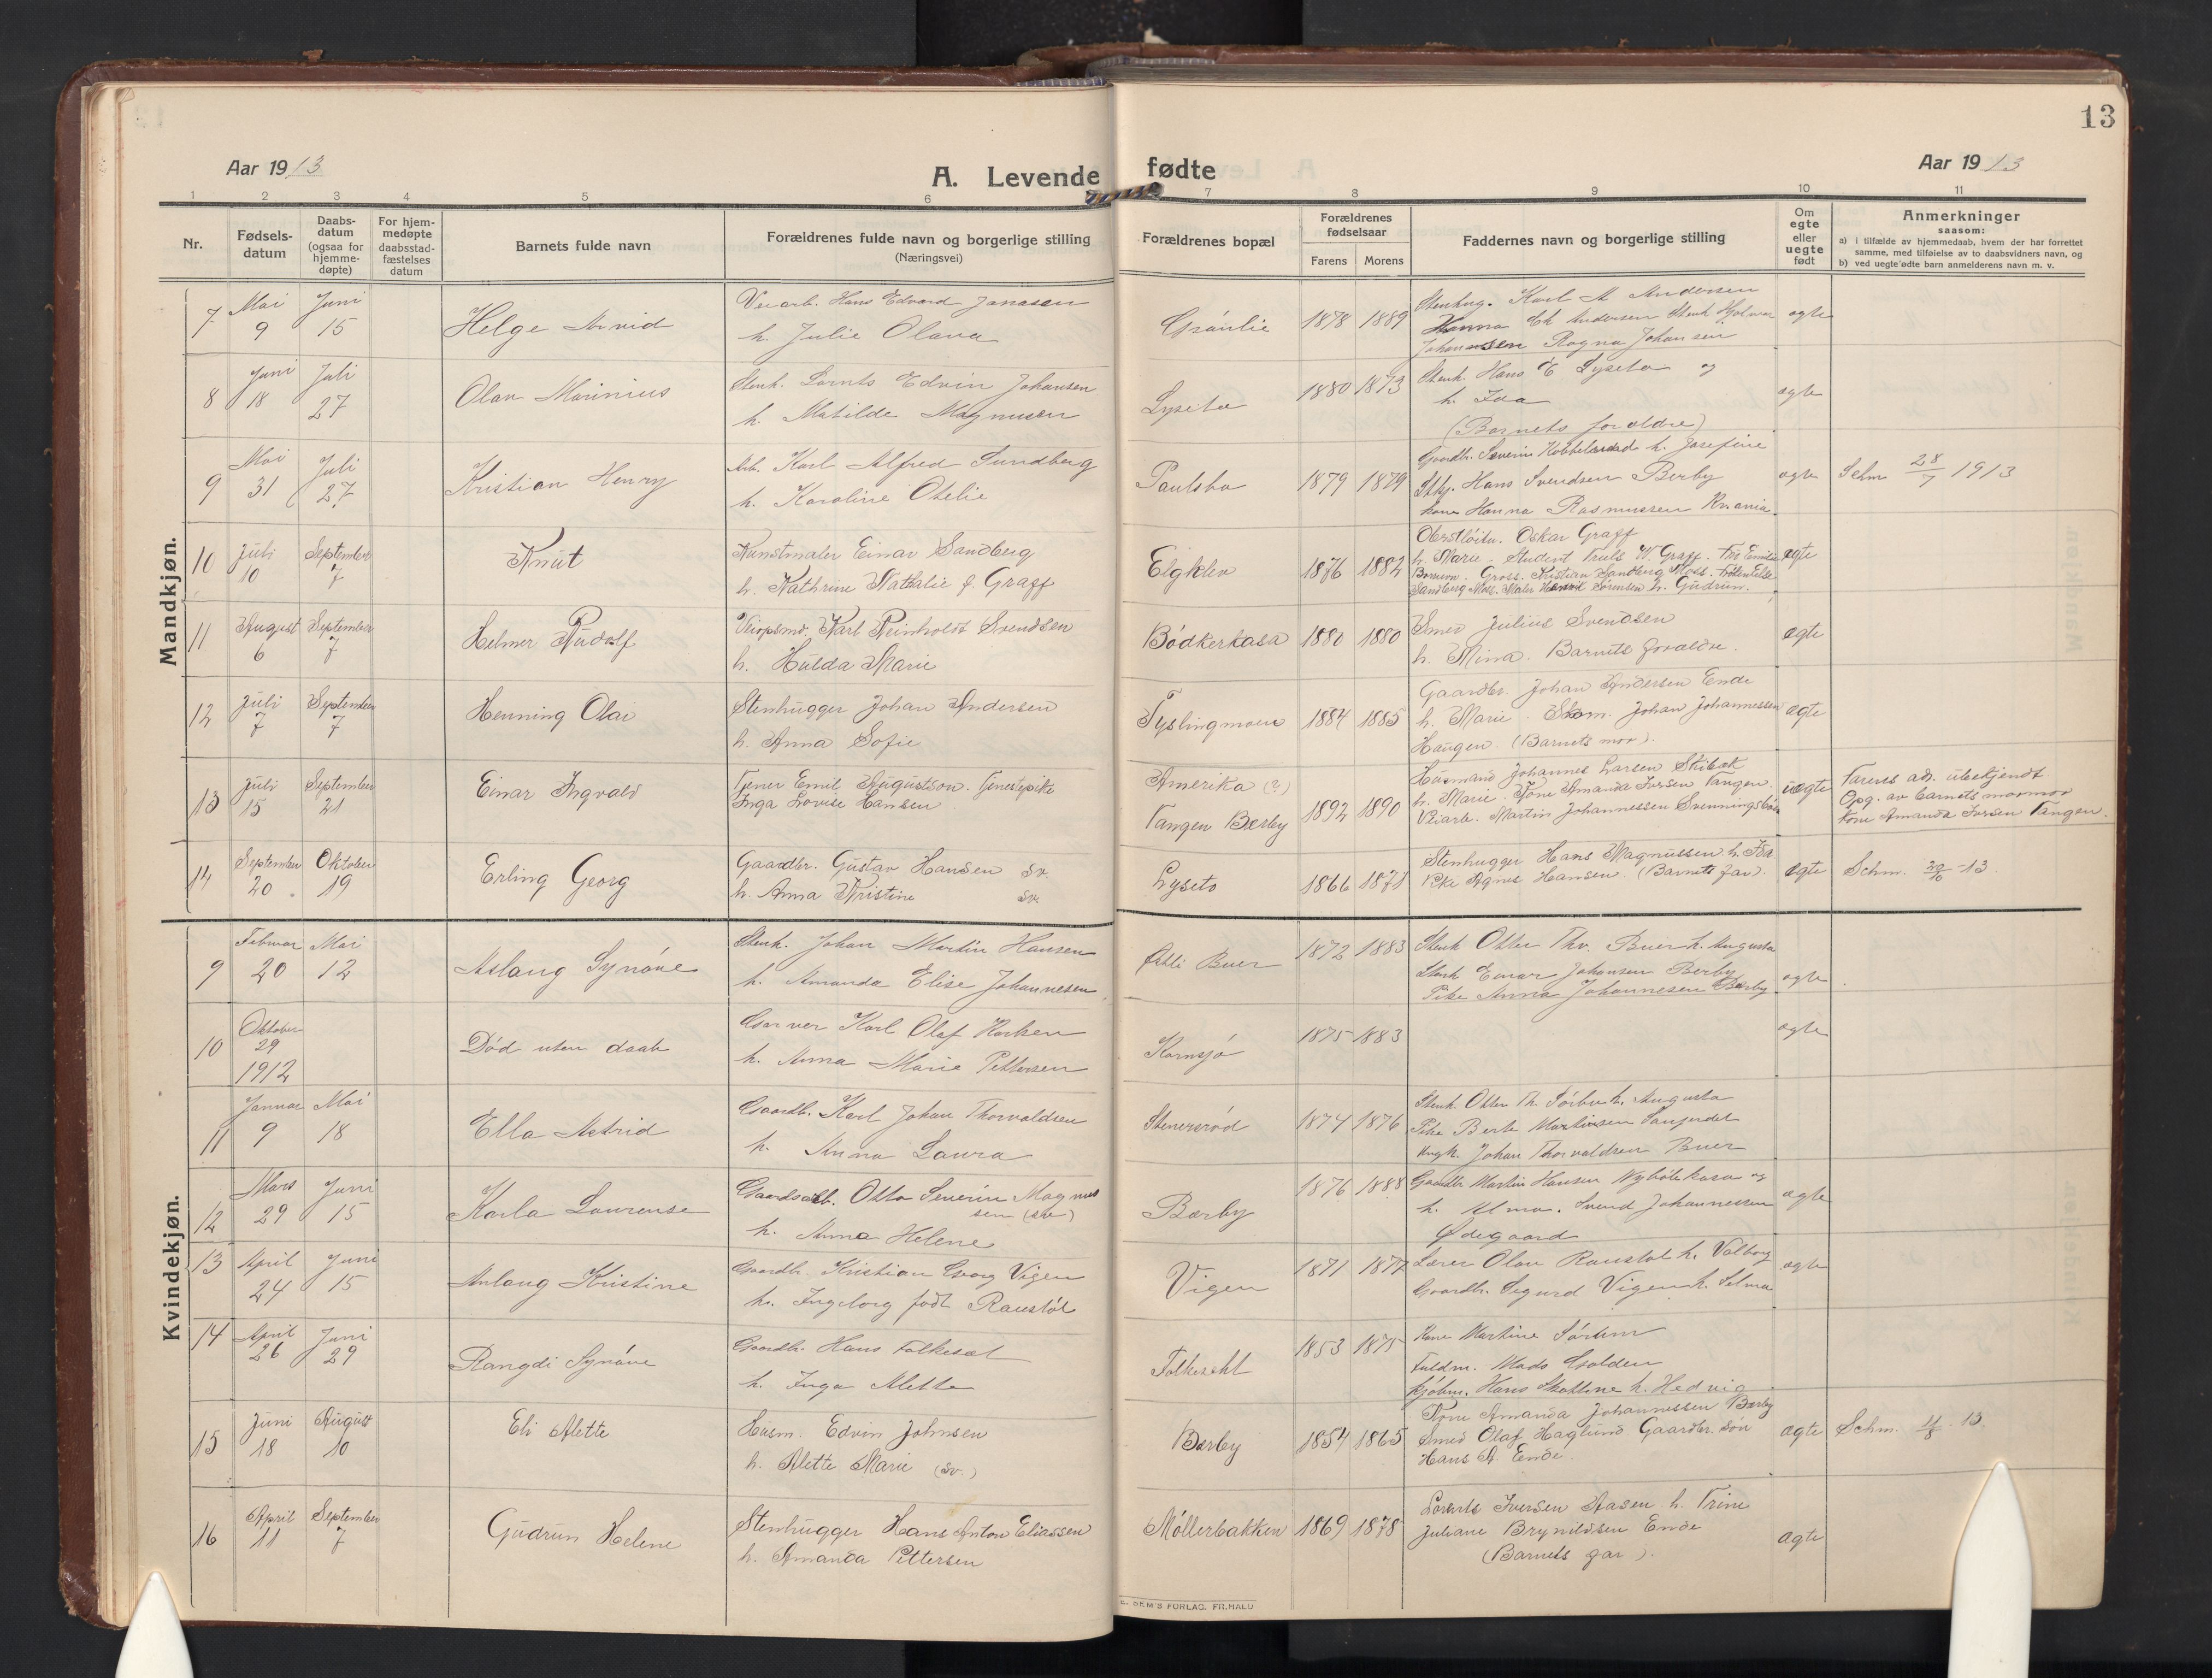 13
Aar 1913
A. Levende
fødte
Aar 1913
1 2 3 4 5 6 7 8 9 10 11
Nr.
Fødsels-
datum
Daabs-
datum
(ogsaa for
hjemme-
døpte)
For hjem-
medøpte
daabsstad-
fæstelses
datum
Barnets fulde navn
Forældrenes fulde navn og borgerlige stilling
(Næringsvei)
Forældrenes bopæl
Forældrenes
fødselsaar
Farens Morens
Faddernes navn og borgerlige stilling
Om
egte
eller
uegte
født
Anmerkninger
saasom:
a) i tilfælde av hjemmedaab, hvem der har forrettet
samme, med tilføielse av to daabsvidners navn, og
b) ved uegte fødte barn anmelderens navn m. v.
Mandkjøn.
7
Mai
9
Juni
15
Helge Arvid
Veiarb. Hans Edvard Jonasen
h. Julie Olava
Grönlie
1878 1889
Stenhug. Karl A Andersen
Hanna Ch Andersen Stenh Hjalmar
Johannsen Ragna Johansen
egte
8
Juni
18
Juli
27
Olav Marinius
Stenh. Lornts Edvin Johansen
h. Matilde Magnusen
Lyseto
1880 1873
Stenh. Hans E Lyseto og
h. Ida
(Barnets forældre)
egte
9
Mai
31
Juli
27
Kristian Henry
Arb. Karl Alfred Sundberg
h. Karoline Otelie
Paulsbo
1879 1879
Gaardbr. Severin h. Josefine
Hans Svendsen Berby
kone Hanna Rasmussen Kr.ania.
egte
Schm 28/7 1913
10
Juli
10
September
7
Knut
Kunstmaler Einar Sandberg
h. Kathrine Nathalie f. Graff
Elgklev
1876 1882
Oberstløitn. Oskar Graff
h. Marie Student Truls W. Graff. Fru Emilie
Gross. Kristian Sandberg Moss. Frøken Else
Sandberg Moss. Maler Henrik Sørensen h. Gudrun.
egte
11
August
6
September
7
Helmer Rudolf
Veiopsmd. Karl Reinholdt Svendsen
h. Hulda Marie
Bödkerkasa
1880 1880
Smed Julius Svendsen
h. Mina. Barnets forældre.
egte
12
Juli
7
September
7
Henning Olai
Stenhugger Johan Andersen
h. Anna Sofie
Tyslingmoen
1884 1885
Gaardbr. Johan Andersen Ende
h. Marie. Skom. Johan Johannessen
Haugen. (Barnets mor).
egte
13
Juli
15
September
21
Einar Ingvald
Tjener Emil Augustson. Tjenestepike
Inga Lovise Hansen
Amerika (?)
Tangen Berby
1892 1890
Husmand Johannes Larsen Skibæk
h. Marie. Kone Amanda Iversen Tangen.
Veiarb. Martin Johannessen
uegte
Farens adr. ubekjendt
Opg. av barnets mormor
kone Amanda Iversen Tangen.
14
September
20
Oktober
19
Erling Georg
Gaardbr. Gustav Hansen sv.
h. Anna Kristine sv.
Lyseto
1866 1871
Stenhugger Hans Magnussen h. Ida
Pike Agnes Hansen. (Barnets far).
egte
Schm. 20/10 - 13
Kvindekjøn.
9
Februar
20
Mai
12
Aslaug Synöve
Stenh. Johan Martin Hansen
h. Amanda Elise Johannesen
Buer
1872 1883
Stenh Otter Thv. Buer h. Augusta
Stenh Einar Johansen Berby
Pike Anna Johannesen Berby
egte
10
Oktober
29
1912
Död uten daab
Garver Karl Olaf Hocken
h. Anna Marie Pettersen
Kornsjö
1875 1883
egte
11
Januar
9
Mai
18
Ella Astrid
Gaardb. Karl Johan Thorvaldsen
h. Anna Laura
Stenersröd
1874 1876
Stenh. Otter Th. Sörbu h. Augusta
Pike Berte Martinsen
Ungk. Johan Thorvaldsen Buer
12
Mars
29
Juni
15
Karla Laurense
Otto Severin Magnus
sen (sv)
h. Anna Helene
Berby
1876 1888
Gaardbr Martin Hansen Nybölekasa og
h. Alma. Svend Johannessen
Ødegaard
egte
13
April
24
Juni
15
Aslaug Kristine
Gaardbr. Kristian Georg Vigen
h. Ingeborg født Raustöl
Vigen
1871 1877
Lærer Olav Raustöl h. Valborg
Gaardbr. Sigurd Vigen h. Selma
egte
14
April
26
Juni
29
Rangdi Synöve
Gaardbr. Hans Folkesæt
h. Inga Alette
1853 1875
Kone Martine Sörum
Fuldm. Mads Golden
Kjöbm. Hans h. Hedvig
15
Juni
18
August
10
Eli Alette
Husm. Edvin Johnsen
h. Alette Marie (sv.)
Berby
1854 1865
Kone Amanda Johannessen Berby
Smed Olaf Haglund Gaardbr. søn
Hans A. Ende.
egte
Schm. 11/8 - 13.
16
April
11
September
7
Gudrun Helene
Stenhugger Hans Anton Eliassen
h. Amanda Pettersen
Möllerbakken
1869 1878
Lorents Iversen Aasen h. Trine
Juliane Brynildsen Ende
(Barnets far).
egte
SEM'S FORLAG, FR.HALD